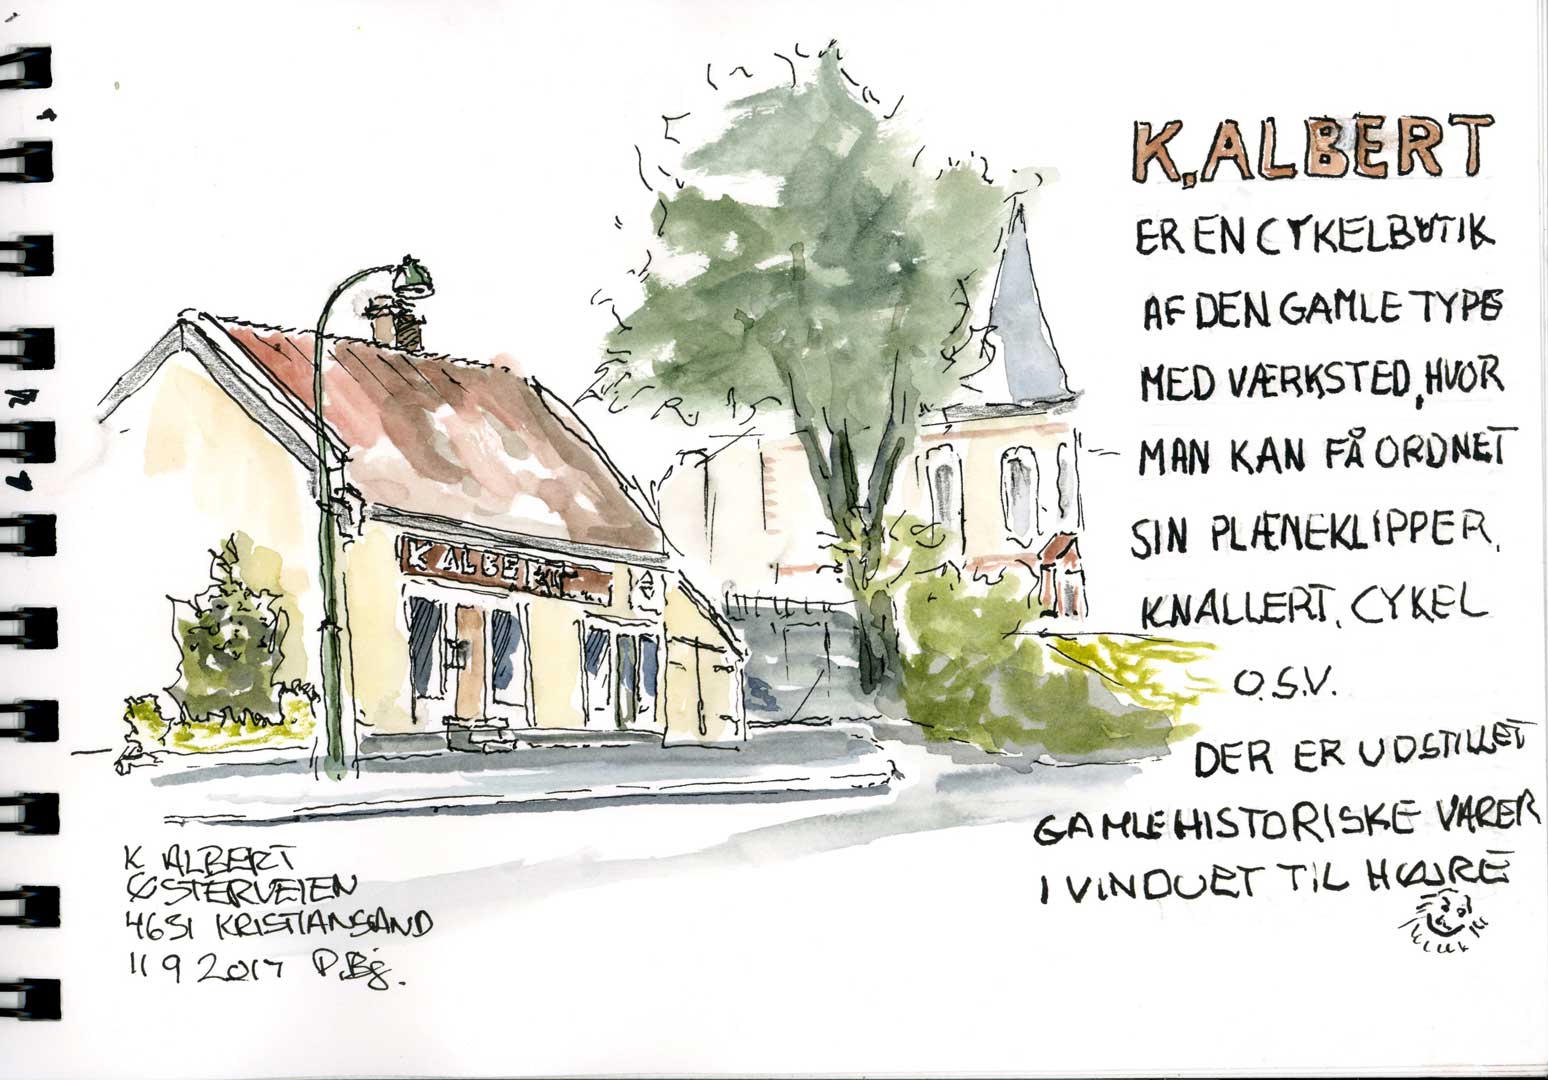 K. ALBERT
ER EN CYKELBUTIK
AF DEN GAMLE TYPE
MED VÆRKSTED, HVOR
MAN KAN FÅ ORDNET
SIN PLÆNEKLIPPER,
KNALLERT, CYKEL
O.S.V.
DER ER UDSTILLET
GAMLE HISTORISKE VARER
I VINDUET TIL HØJRE
K ALBERT
K ALBERT
ØSTERVEIEN
4631 KRISTIANSAND
11 9 2017 P.Bj.